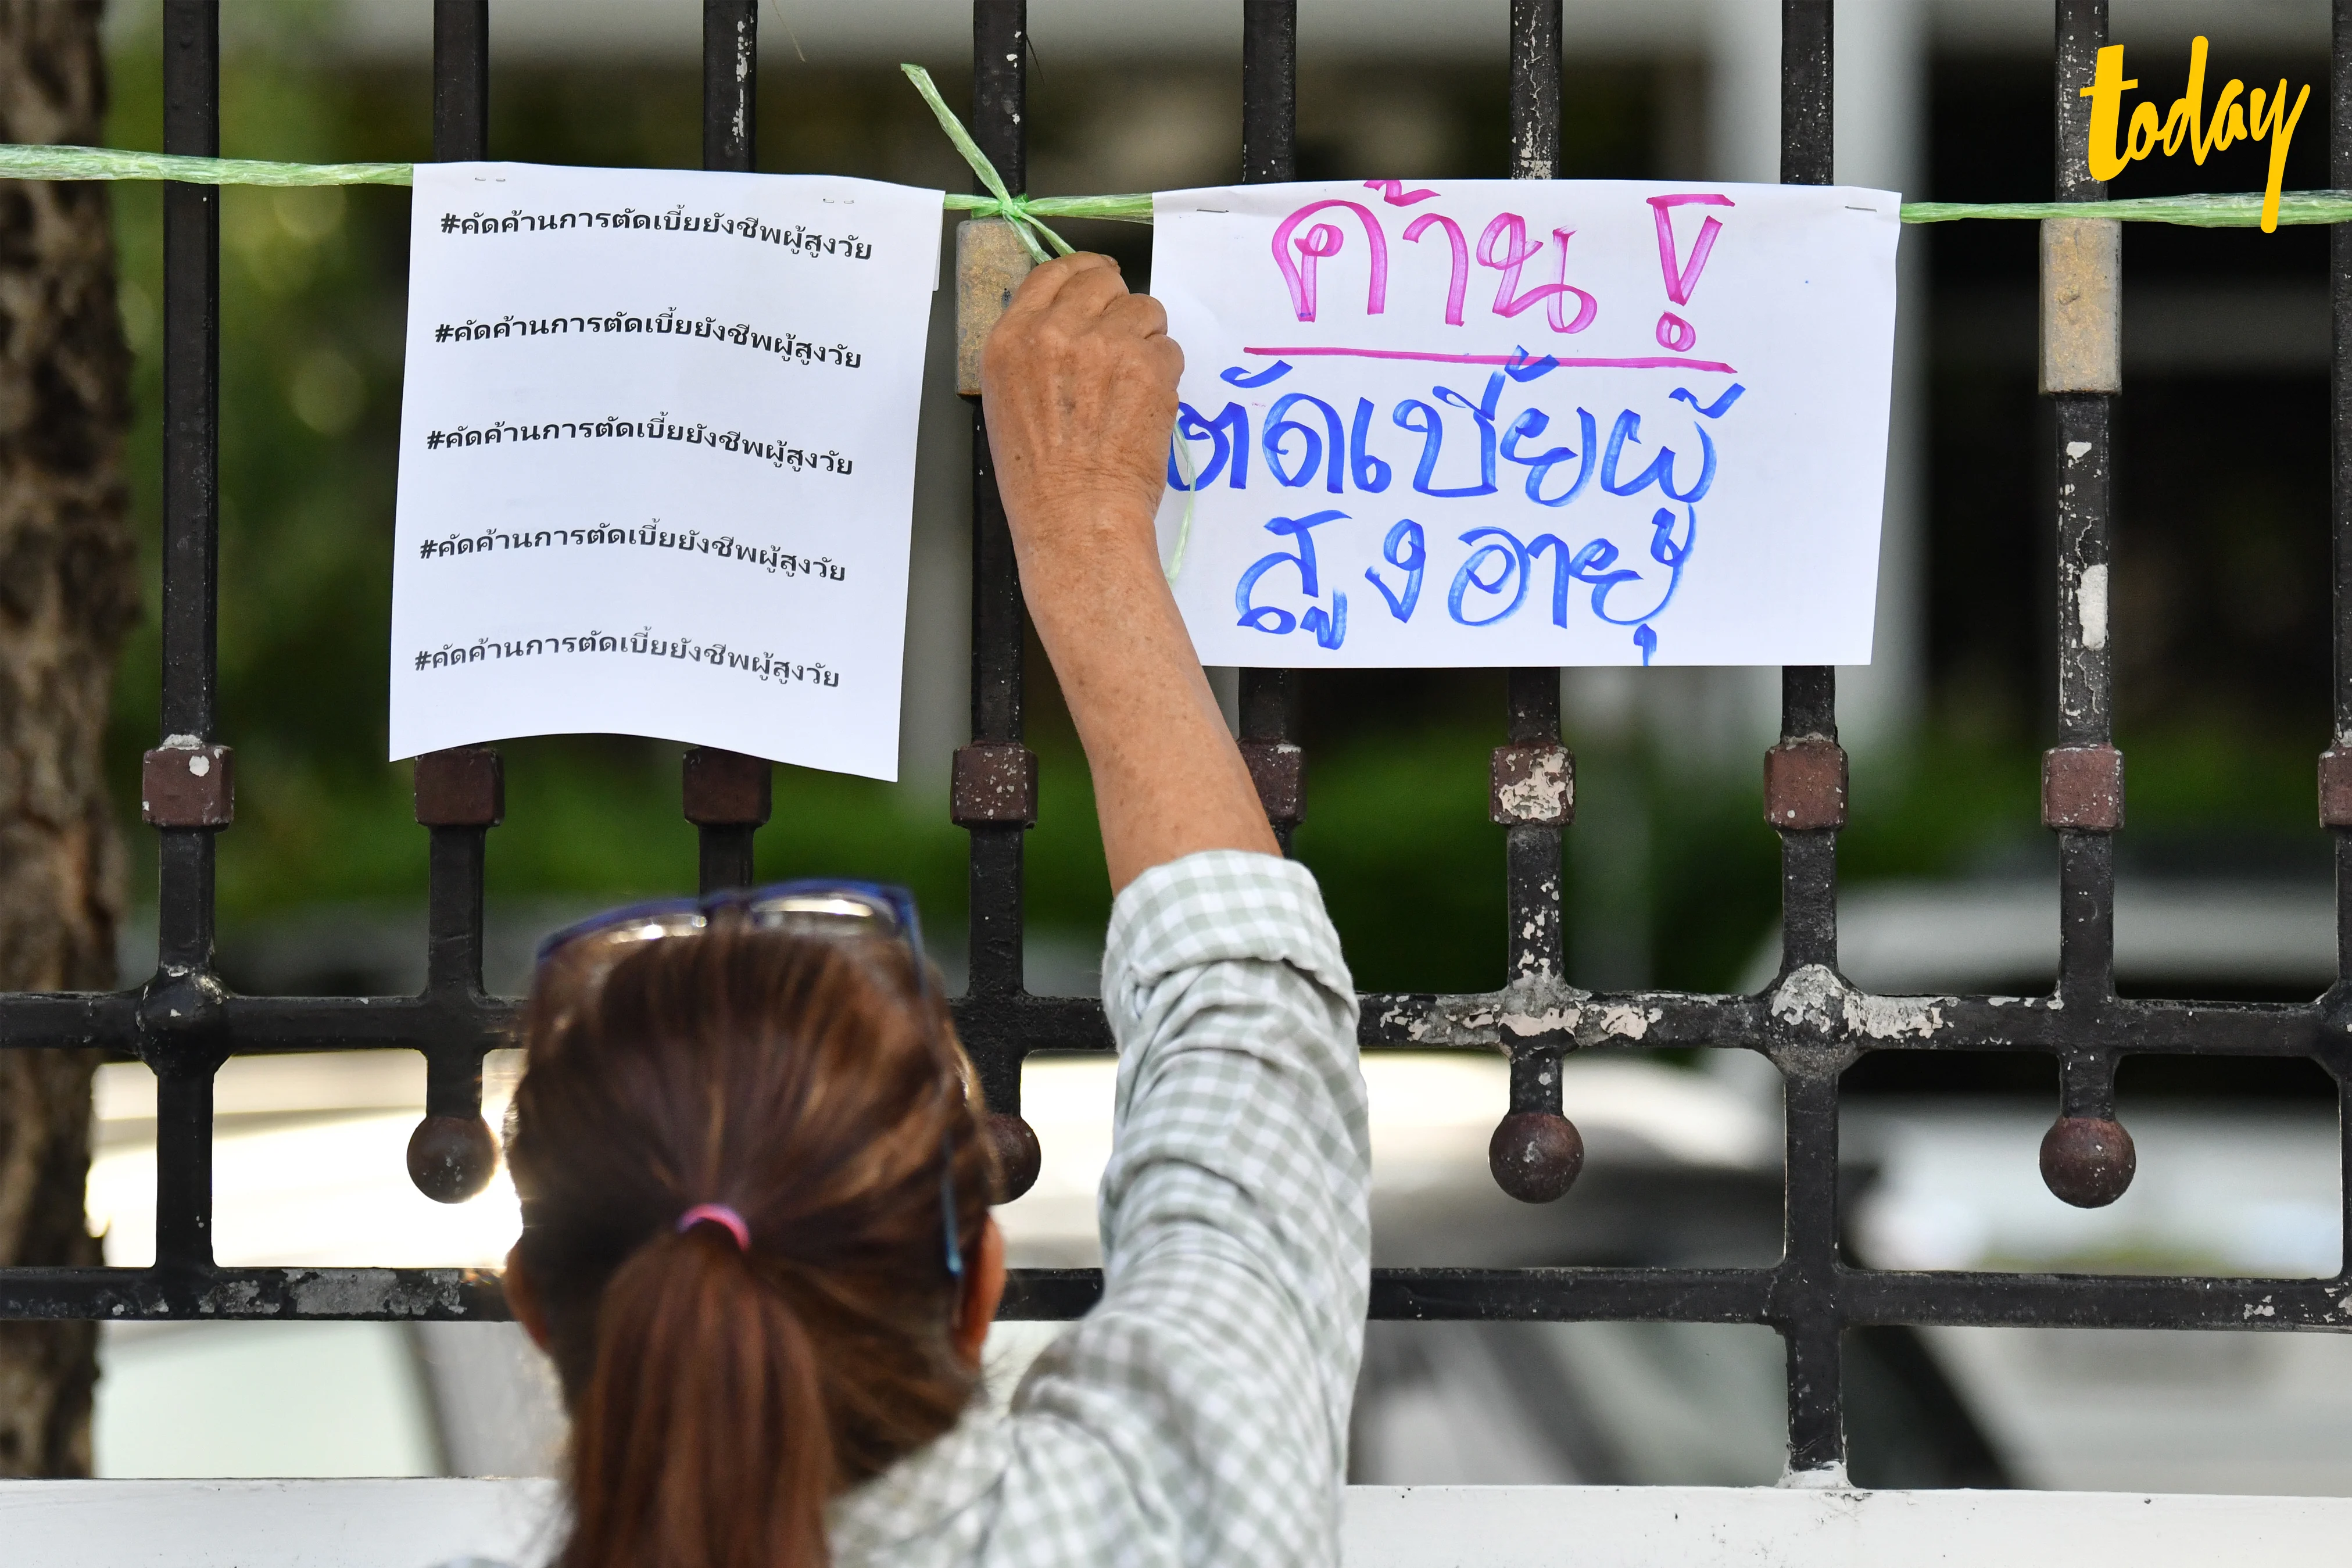 today
#คัดค้านการตัดเบี้ยยังชีพผู้สูงวัย
#คัดค้านการตัดเบี้ยยังชีพผู้สูงวัย
#คัดค้านการตัดเบี้ยยังชีพผู้สูงวัย
#คัดค้านการตัดเบี้ยยังชีพผู้สูงวัย
#คัดค้านการตัดเบี้ยยังชีพผู้สูงวัย
ค้าน !
ตัดเบี้ยผู้
สูงอายุ